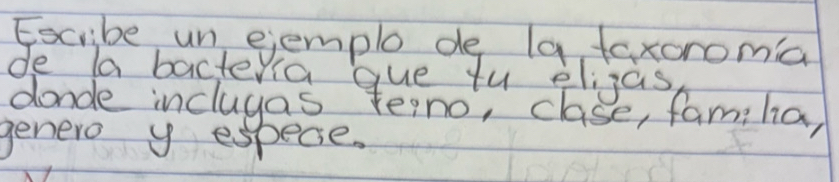 Escribe un ejemplo de la taxonomía
de la bacteria que tu elijas,
donde incluyas reino, clase, familia,
genero y especie.